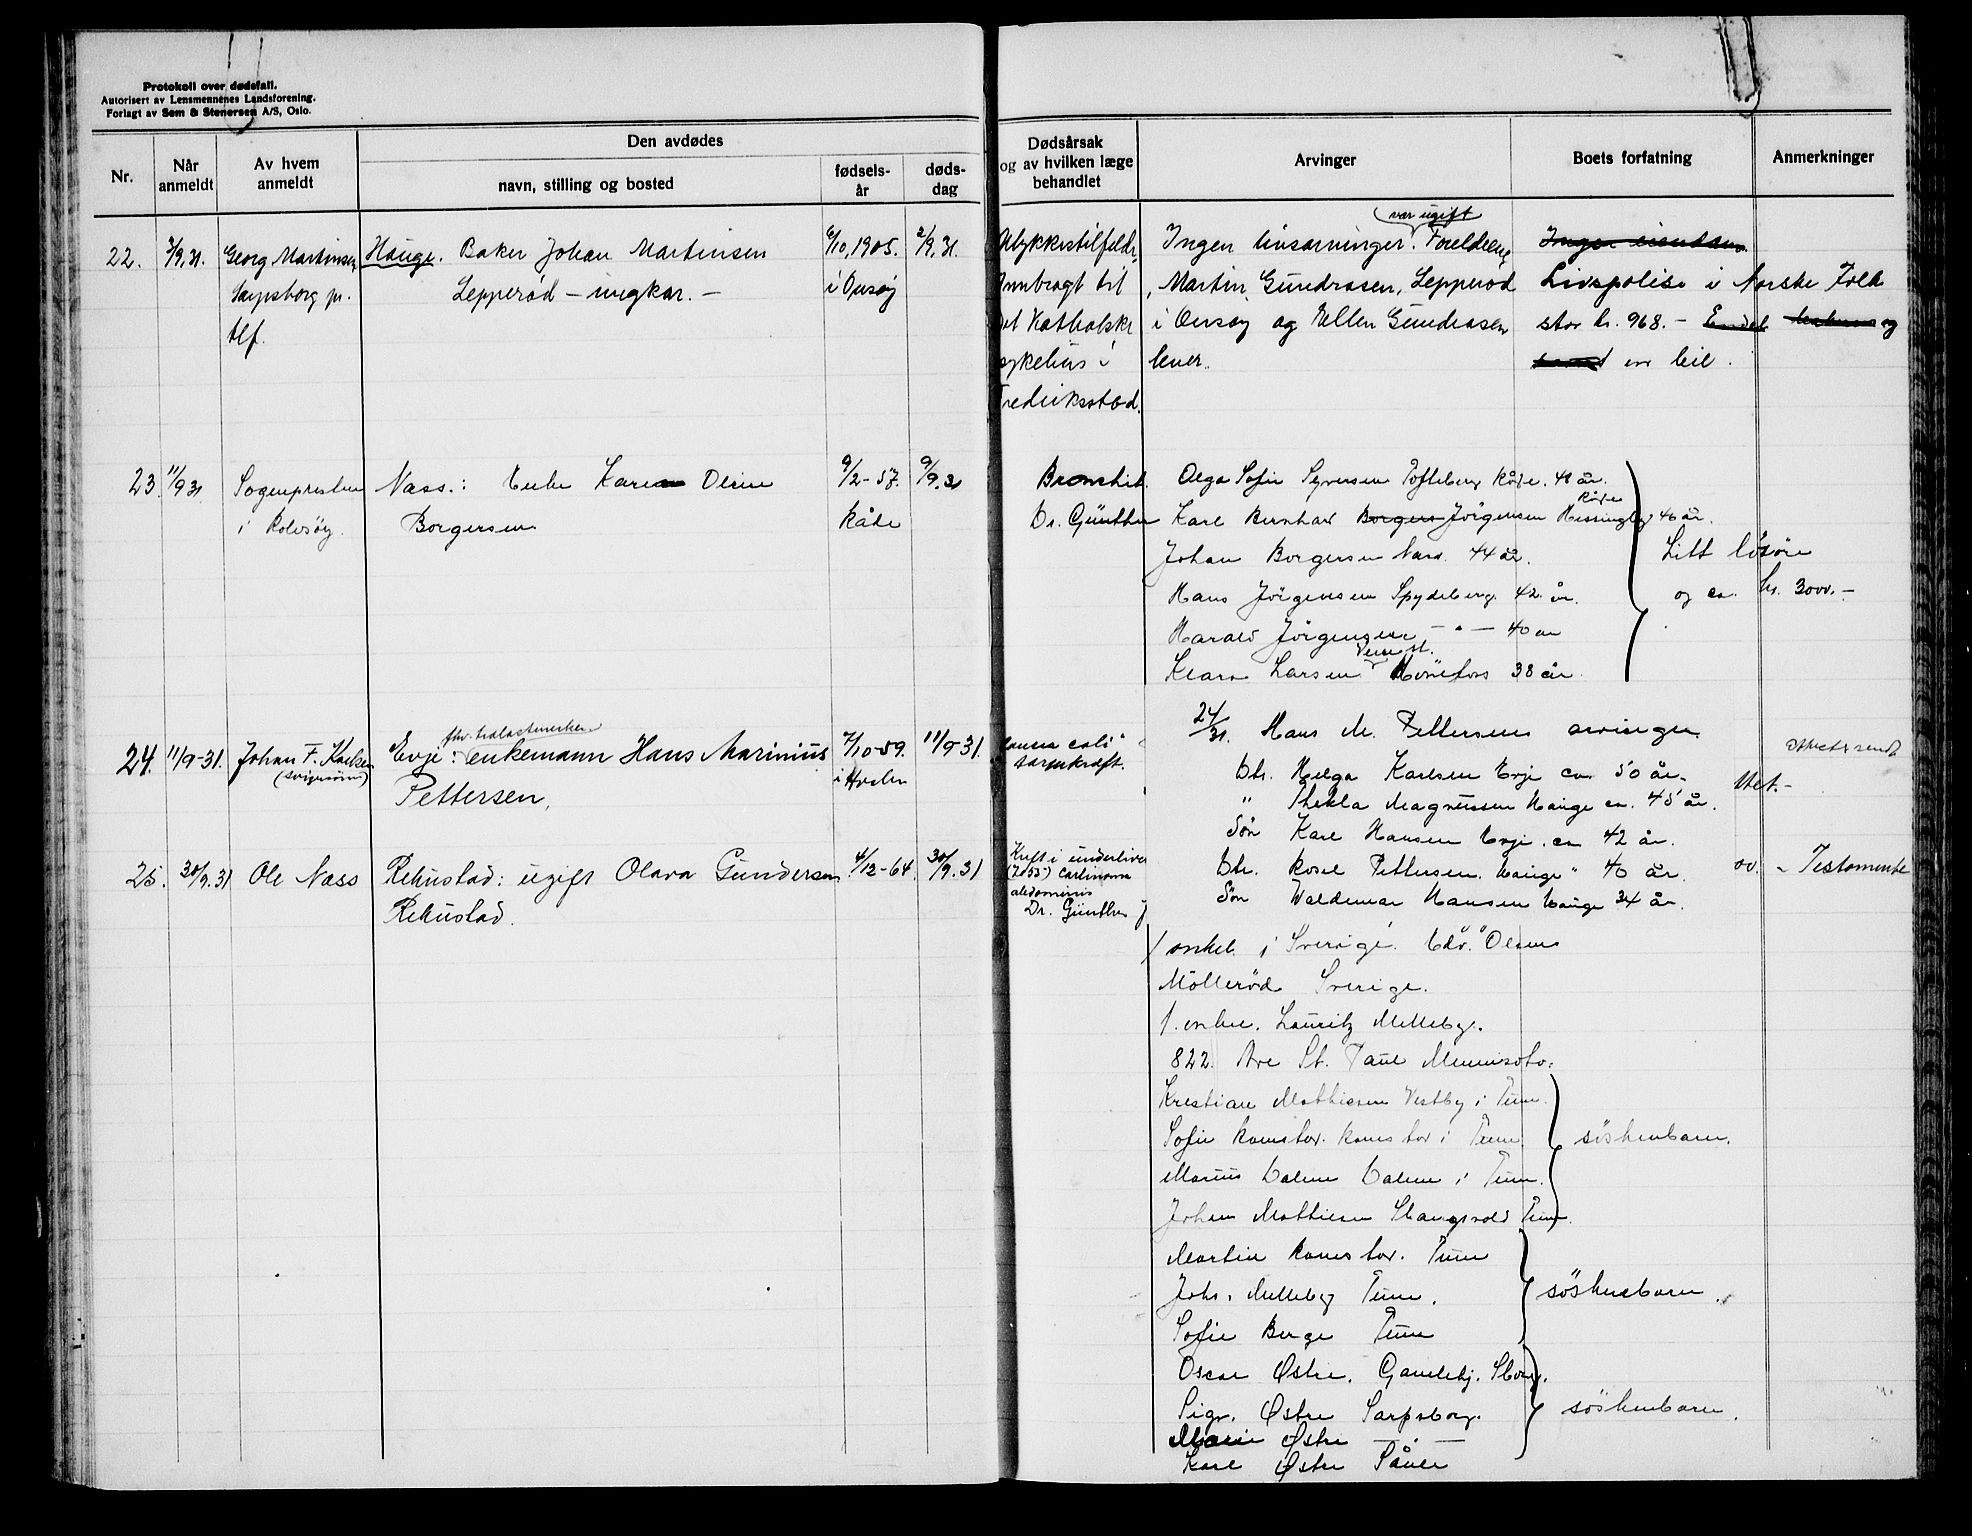 Protokoll over dødsfall.
Autorisert av Lensmennenes Landsforening.
Forlagt av Sem & Stenersen A/S, Oslo.
Nr.
Når anmeldt
Av hvem anmeldt
Den avdødes
navn, stilling og bosted
fødsels-år
døds-dag
Dødsårsak og av hvilken læge behandlet
Arvinger
Boets forfatning
Anmerkninger
22. 3/9.31. Georg Martinsen, Hauge. Baker Johan Martinsen 6/10.1905. 2/9.31.
Sarpsborg pr. Lepperød – ungkar. – i Onsøy
tlf.
Ulykkestilfelde,
Innbragt til
det Katholske
sykehus i
Fredrikstad.
var ugift
Ingen livsarvinger. Foreldrene
, Martin Gundrosen, Lepperød
i Onsøy og Ellen Gundrosen
lever.
Ingen eiendom
Livspolise i Norske Folk
stor kr. 968. – Endel og
en bil.
23. 11/9 31 Sogepresten Næss.: Enke Karen Oline 9/2-57. 9/9.31
i Rolvsøy. Borgersen Råde
Bronchit.
Dr. Günther
Olga Sofie Syversen Tofteberg Råde. 48 år.
Råde
Karl Bernhard Borgers Jörgensen Hessingby 46 år.
Johan Borgersen Næss. 44 år.
Hans Jörgensen Spydeberg. 42 år.
Harald Jörgensen – " – 40 år
Klara Larsen Hönefoss 38 år.
Litt lösöre
og ca. kr. 3000.–
24. 11/9-31. Johan F. Karlsen Evje: enkemann Hans Marinius 7/10-59. 11/9-31.
(svigersönn) Pettersen, i Hvaler
cancer coli
24/31. Hans M. Pettersens arvinger
Dtr. Helga Karlsen Evje ca 50 år.
" Thekla Magnussen Hauge ca. 45 år.
Sön Karl Hansen Evje. ca 42 år.
Dtr. Rosel Pettersen. Hauge " 40 år.
Sön Waldemar Hansen Hauge 34 år.
25. 30/9.31 Ole Næss Rekustad: ugift Olava Gundersen 4/12-64. 30/9.31
Rekustad.
Kreft i underlivet
Dr. Günther
– Testamente
1 onkel i Sverige. Edv. Olsen
Mölleröd Sverige.
1. onkel. Lauritz Melleby.
822. Ave St. Paul Minnisota.
Kristian Mathiesen Vestby i Tune.
Sofie i Tune
Marius Dalene Dalene i Tune.
Johan Mathiesen Stangsvold Tune.
söskenbarn.
Martin Tune
Johs. Melleby Tune.
Sofie Berge Tune
söskenbarn
Oscar Østre.
Sigv. Østre Sarpsborg.
Marie Østre
Karl Østre
söskenbarn.